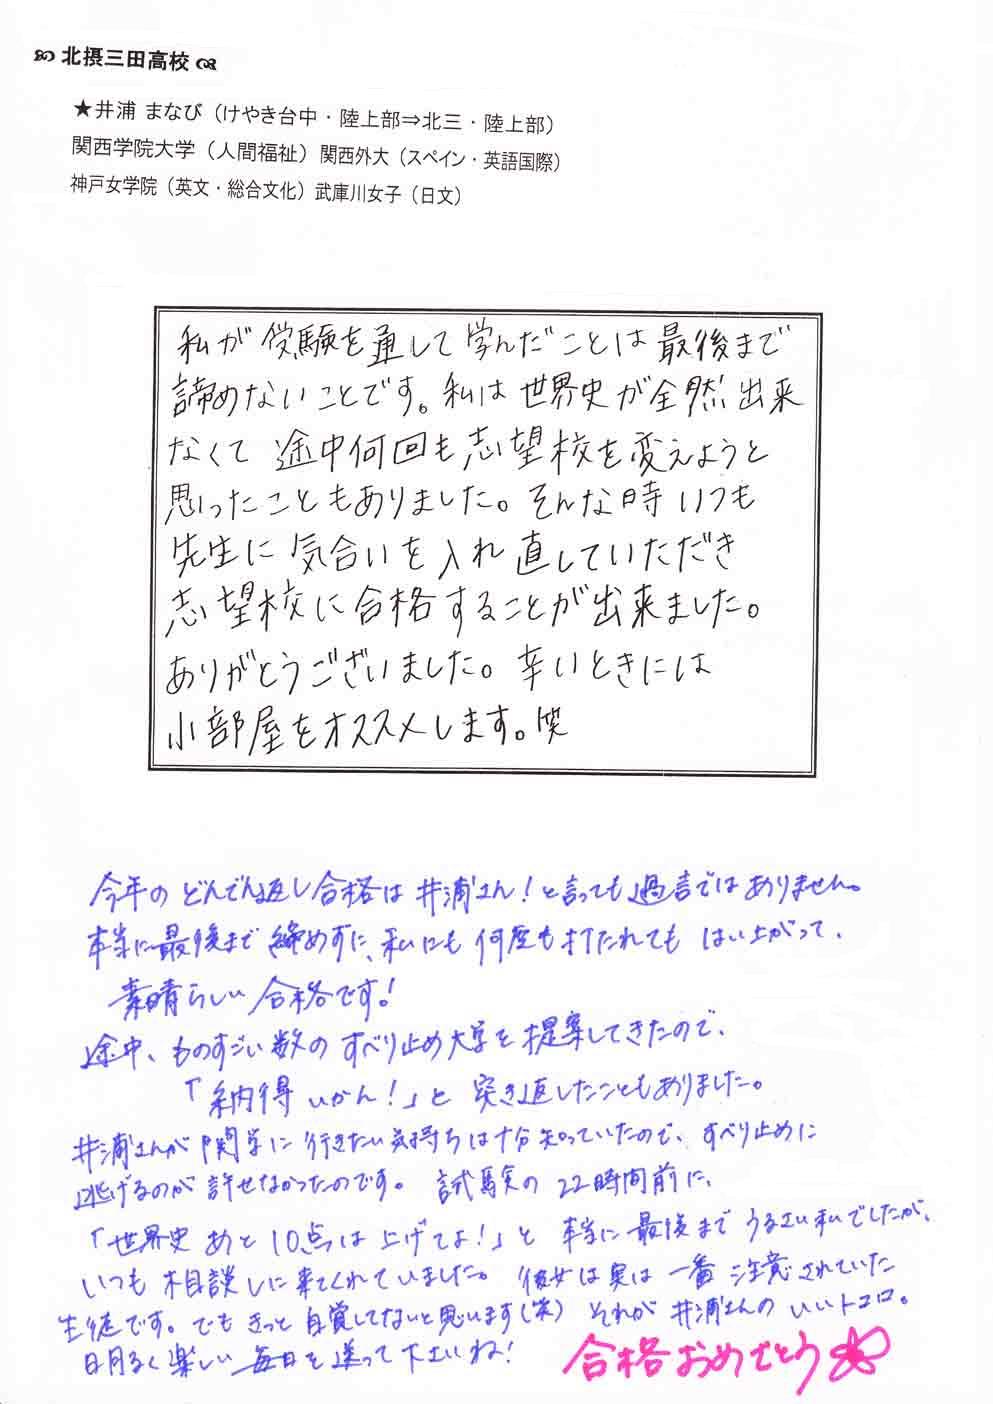 北摂三田高校
★井浦 まなび（けやき台中・陸上部⇒北三・陸上部）
関西学院大学（人間福祉）関西外大（スペイン・英語国際）
神戸女学院（英文・総合文化）武庫川女子（日文）
私が受験を通して学んだことは最後まで
諦めないことです。私は世界史が全然出来
なくて途中何回も志望校を変えようと
思ったこともありました。そんな時いつも
先生に気合いを入れ直していただき
志望校に合格することが出来ました。
ありがとうございました。辛いときには
小部屋をオススメします。笑
今年のどんでん返し合格は井浦さん！と言っても過言ではありません。
本当に最後まで締めずに、私にも何度も打たれてもはい上がって、
素晴らしい合格です！
途中、ものすごい数のすべり止め大学を提案してきたので、
「納得いかん！」と突き返したこともありました。
井浦さんが関学に行きたい気持ちは十分知っていたので、すべり止めに
逃げるのが許せなかったのです。試験の22時間前に、
「世界史あと10点は上げてよ！」と本当に最後までうるさい私でしたが、
いつも相談しに来てくれていました。彼女は実は一番注意されていた
生徒です。でもきっと自覚してないと思います（笑）それが井浦さんのいいトコロ。
明るく楽しい毎日を送って下さいね！
合格おめでとう